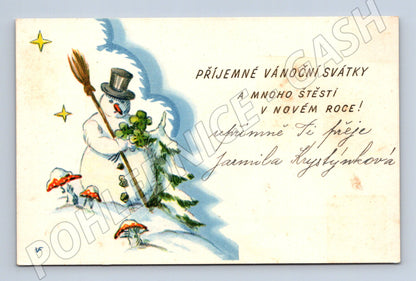 PŘÍJEMNÉ VÁNOČNÍ SVÁTKY
A MNOHO ŠTĚSTÍ
V NOVÉM ROCE!
upřímně Ti přeje
Jarmila Krystýnková
POHLEDNICE - CASH